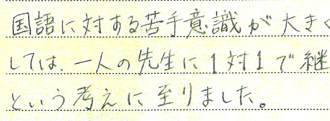 国語に対する苦手意識が大きく
しては、一人の先生に1対1で継
という考えに至りました。